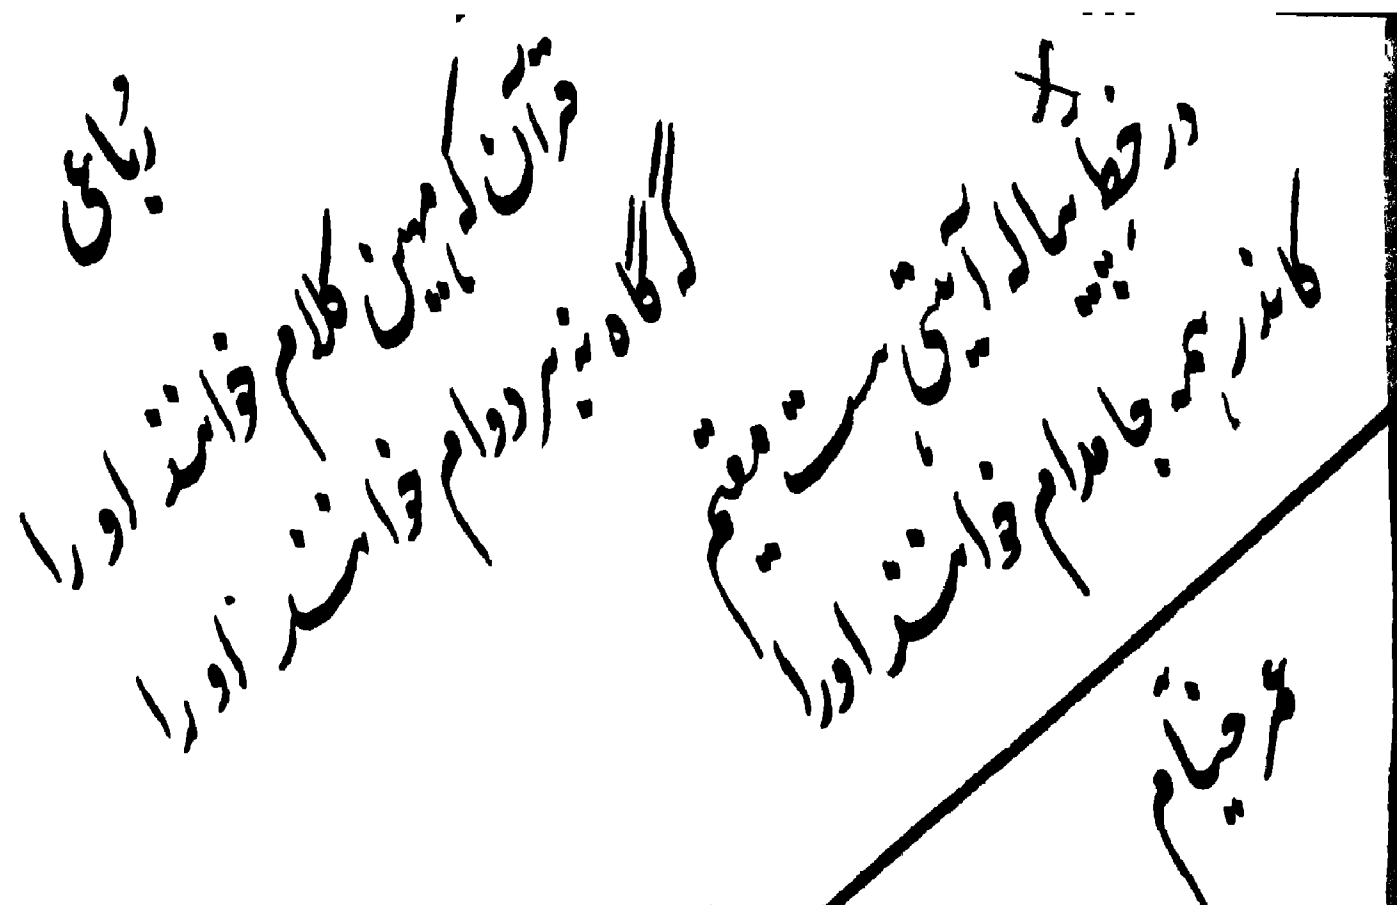 رُباعی
قرآن که مهین کلام خوانند او را
گه گاه نه بر دوام خوانند او را
در خط پیاله آیتی هست مقیم
کاندر همه جا مدام خوانند او را
عمر خیّام